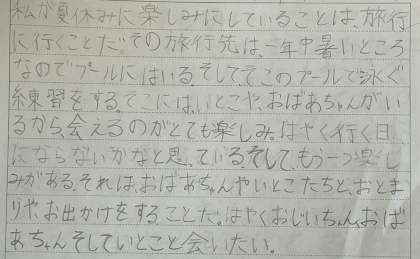 私が夏休みに楽しみにしていることは、旅行
に行くことだ。その旅行先は、一年中暑いところ
なのでプールにはいる。そして、そこのプールで泳ぐ
練習をする。そこには、いとこや、おばあちゃんがい
るから、会えるのがとても楽しみ。はやく行く日
にならないかなと思っている。そして、もう一つ楽し
みがある。それは、おばあちゃんやいとこたちと、おとま
りや、お出かけをすることだ。はやくおじいちゃん、おば
あちゃんそしていとこと会いたい。